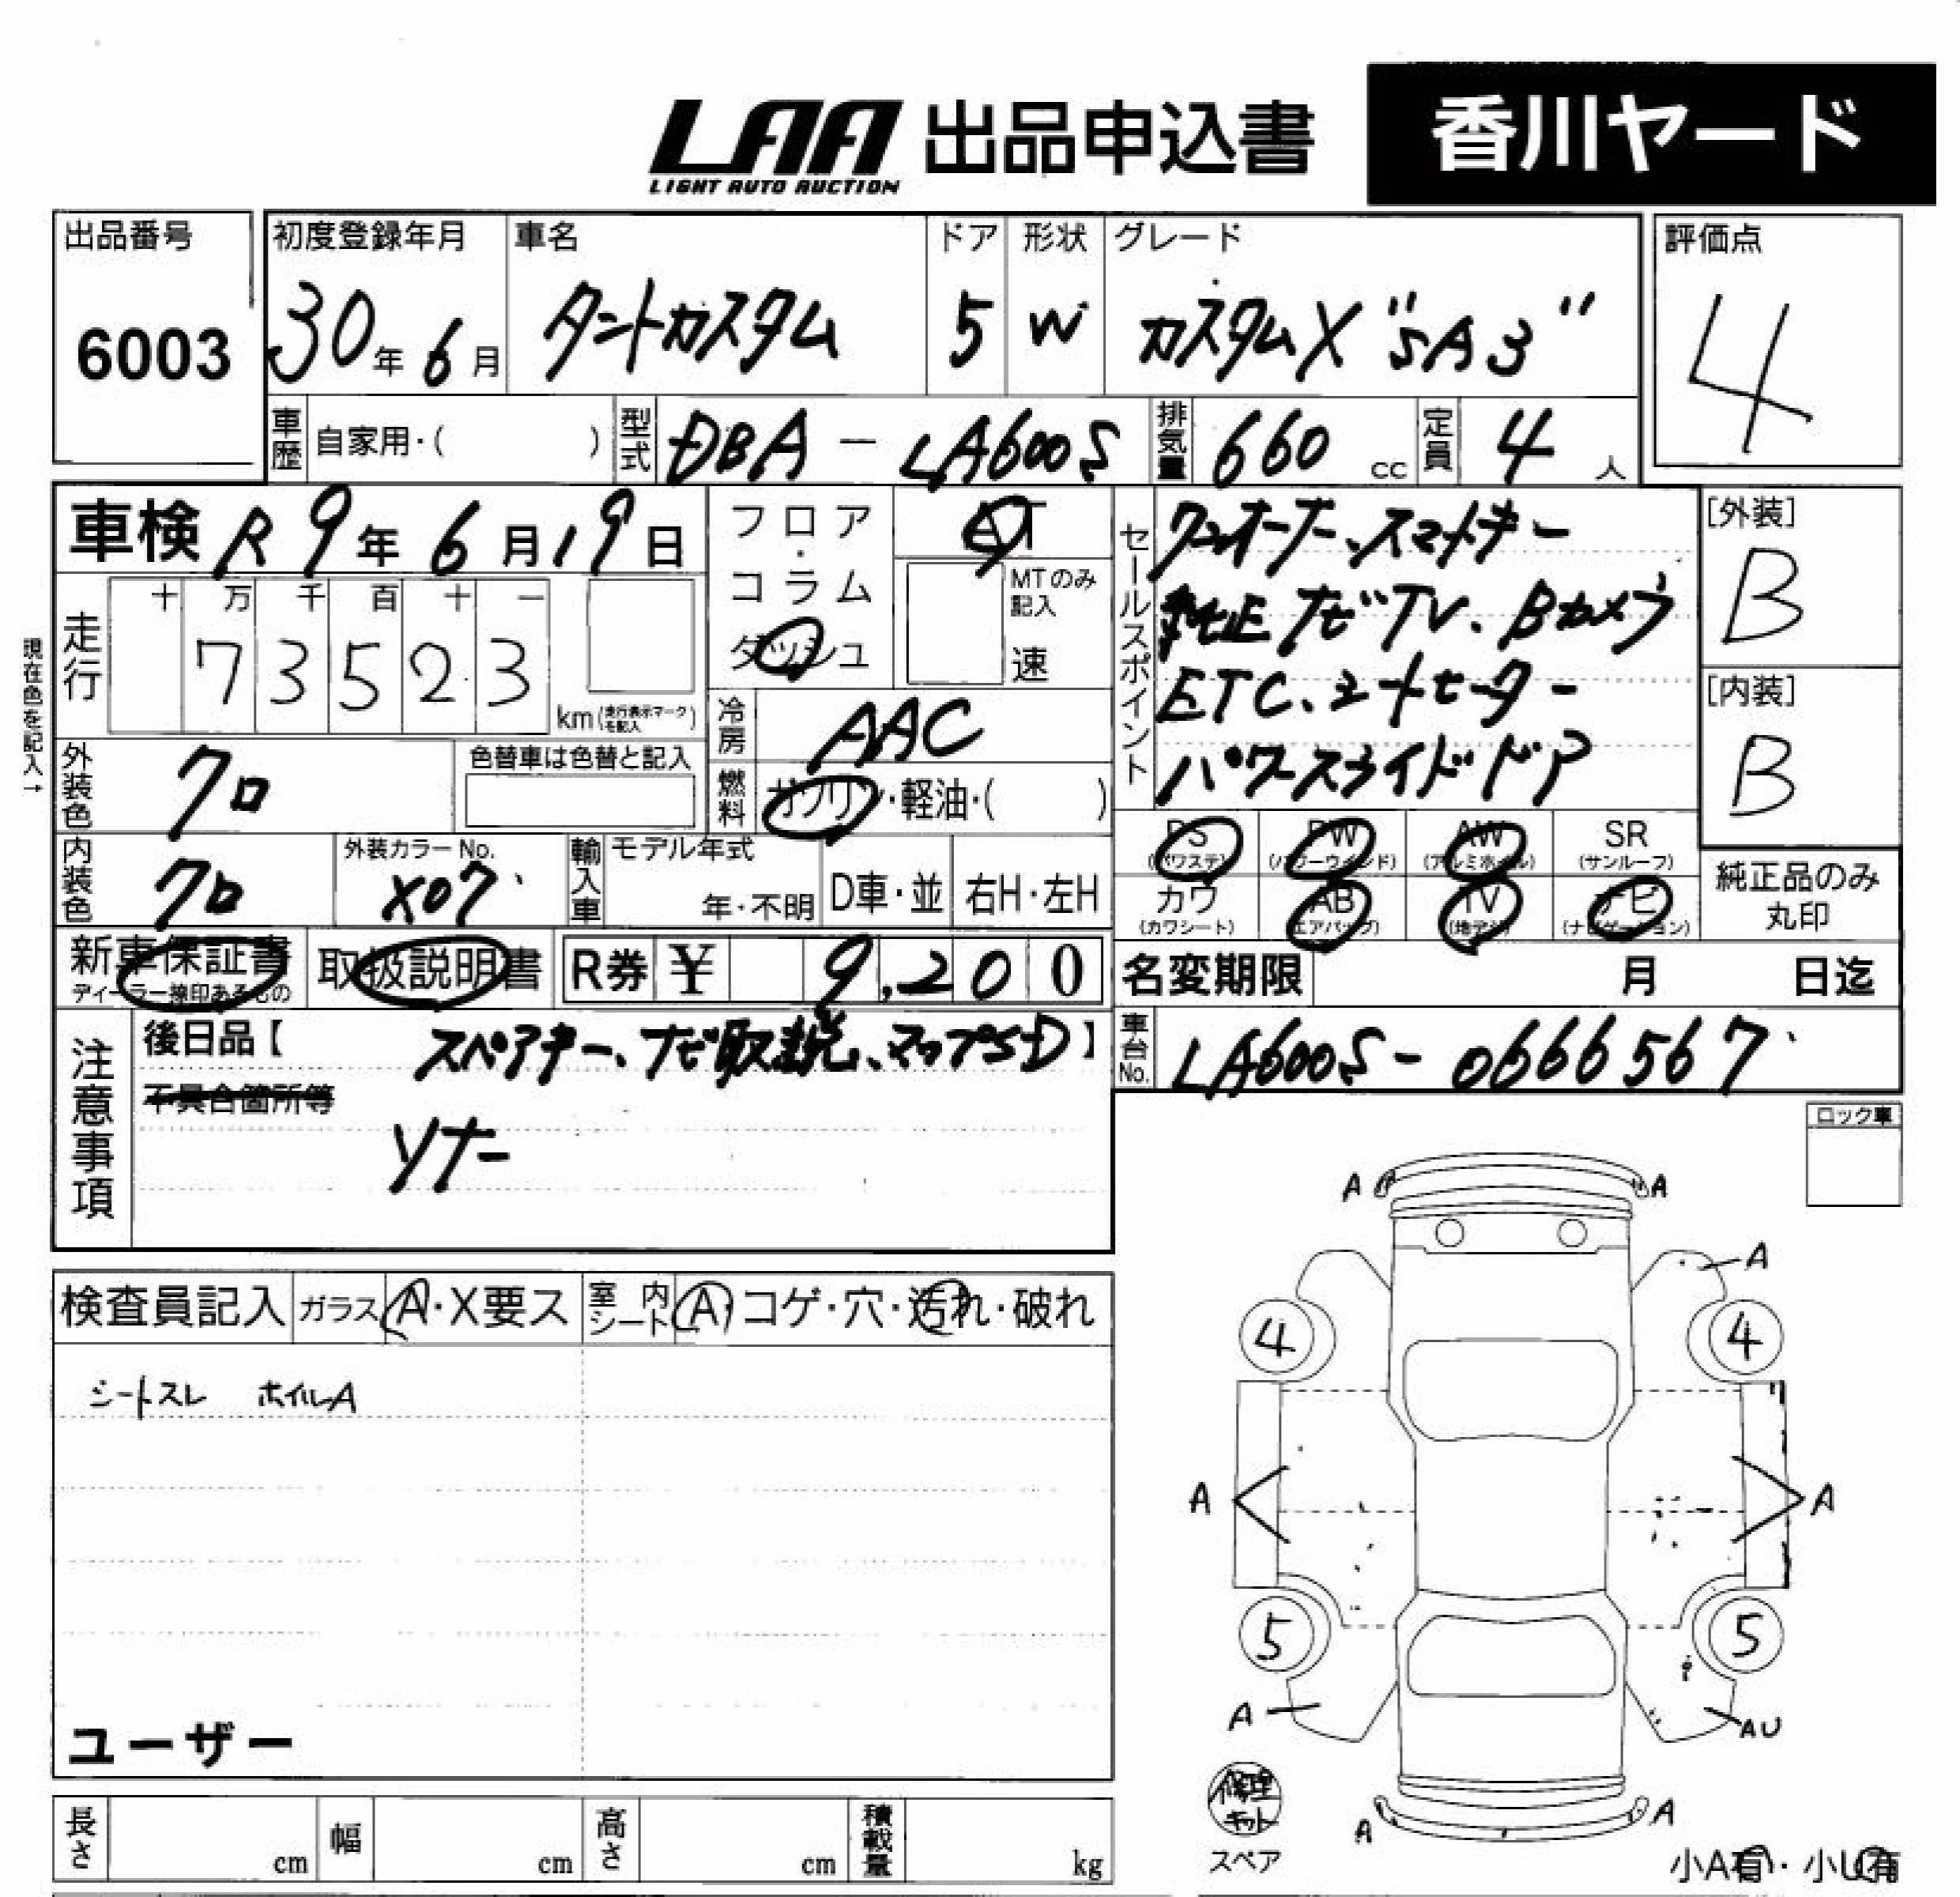 LAA 出品申込書 香川ヤード
LIGHT AUTO AUCTION
出品番号 初度登録年月 車名 ドア 形状 グレード 評価点
6003 30年6月 タントカスタム 5 W カスタムX "SA3" 4
車歴 自家用・( ) 型式 DBA-LA600S 排気量 660 cc 定員 4人
車検 R9年6月19日
フロア・コラム
ダッシュ
AT
MTのみ記入
速
走行 十万千百十一
73523
km(走行表示マークを記入)
現在色を記入→
セールスポイント
ワンオーナー、スマートキー
純正ナビTV、Bカメラ
ETC、シートヒーター
パワースライドドア
[外装]
B
[内装]
B
冷房 AAC
燃料 ガソリン・軽油・( )
外装色 クロ 色替車は色替と記入
内装色 クロ 外装カラーNo. X07
輸入車 モデル年式 年・不明 D車・並 右H・左H
PS (パワステ) PW (パワーウインド) AW (アルミホイル) SR (サンルーフ)
カワ (カワシート) AB (エアバッグ) TV (地デジ) ナビ (ナビゲーション)
純正品のみ
丸印
新車保証書 取扱説明書 R券 ¥ 9,200
ディーラー捺印あるもの
名変期限 月 日迄
車台No. LA600S-0666567
注意事項
後日品【 スペアキー、ナビ取説、マップSD】
不具合箇所等
ソナー
ロック車
検査員記入 ガラス A・X要ス 室内シート A コゲ・穴・汚れ・破れ
シートスレ ホイルA
ユーザー
A A
A
4 4
A A
5 5
A AU
A A
修理キット
スペア
小A有・小U有
長さ cm 幅 cm 高さ cm 積載量 kg